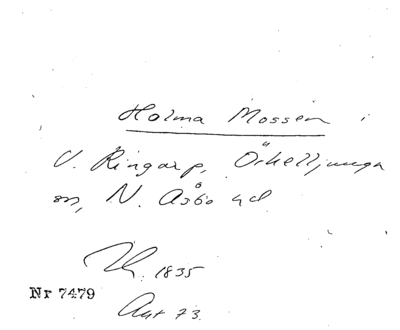 Holma Mossen i
V. Ringarp, Örkelljunga
sn, N. Åsbo hd
Th. 1835
Nr 7479
Aut 73.